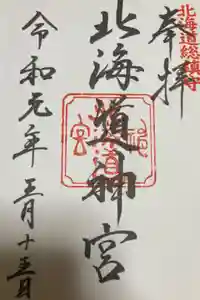 北海道総鎮守
奉拝
北海道神宮
令和元年五月十五日